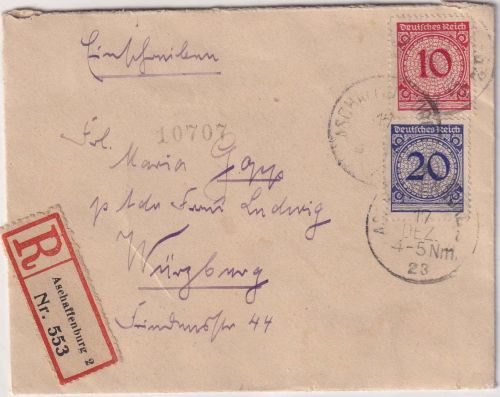 Einschreiben
Deutsches Reich
10
10707
Deutsches Reich
20
Frl.
Maria
p Frau Ludwig
Würzburg
Friedensstr 44
17
DEZ.
4-5 Nm.
23
R
Aschaffenburg 2
Nr. 553